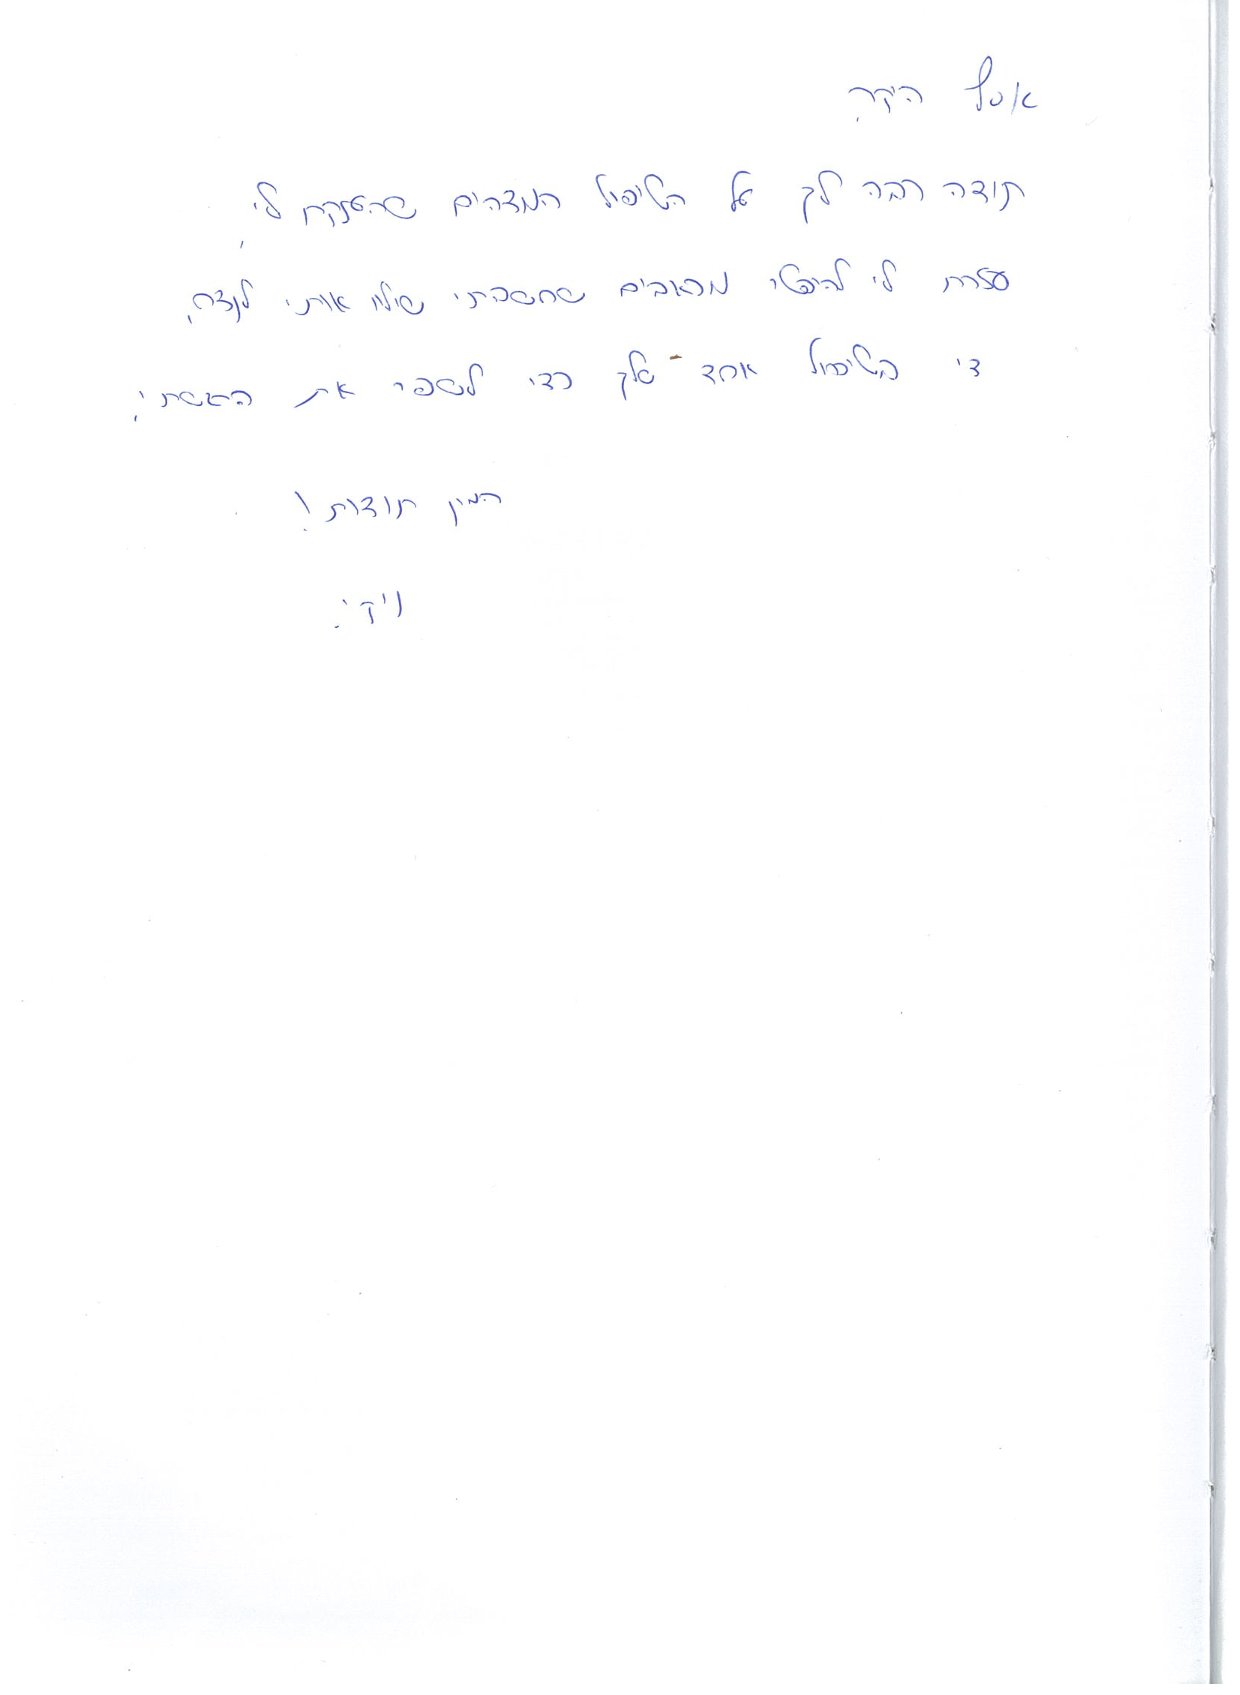 אסף היקר,
תודה רבה לך על הטיפול המדהים שהענקת לי,
עזרת לי להיפטר מכאבים שחשבתי שילוו אותי לנצח,
די בטיפול אחד שלך כדי לשפר את הרגשתי.
המון תודות!
ויקי.